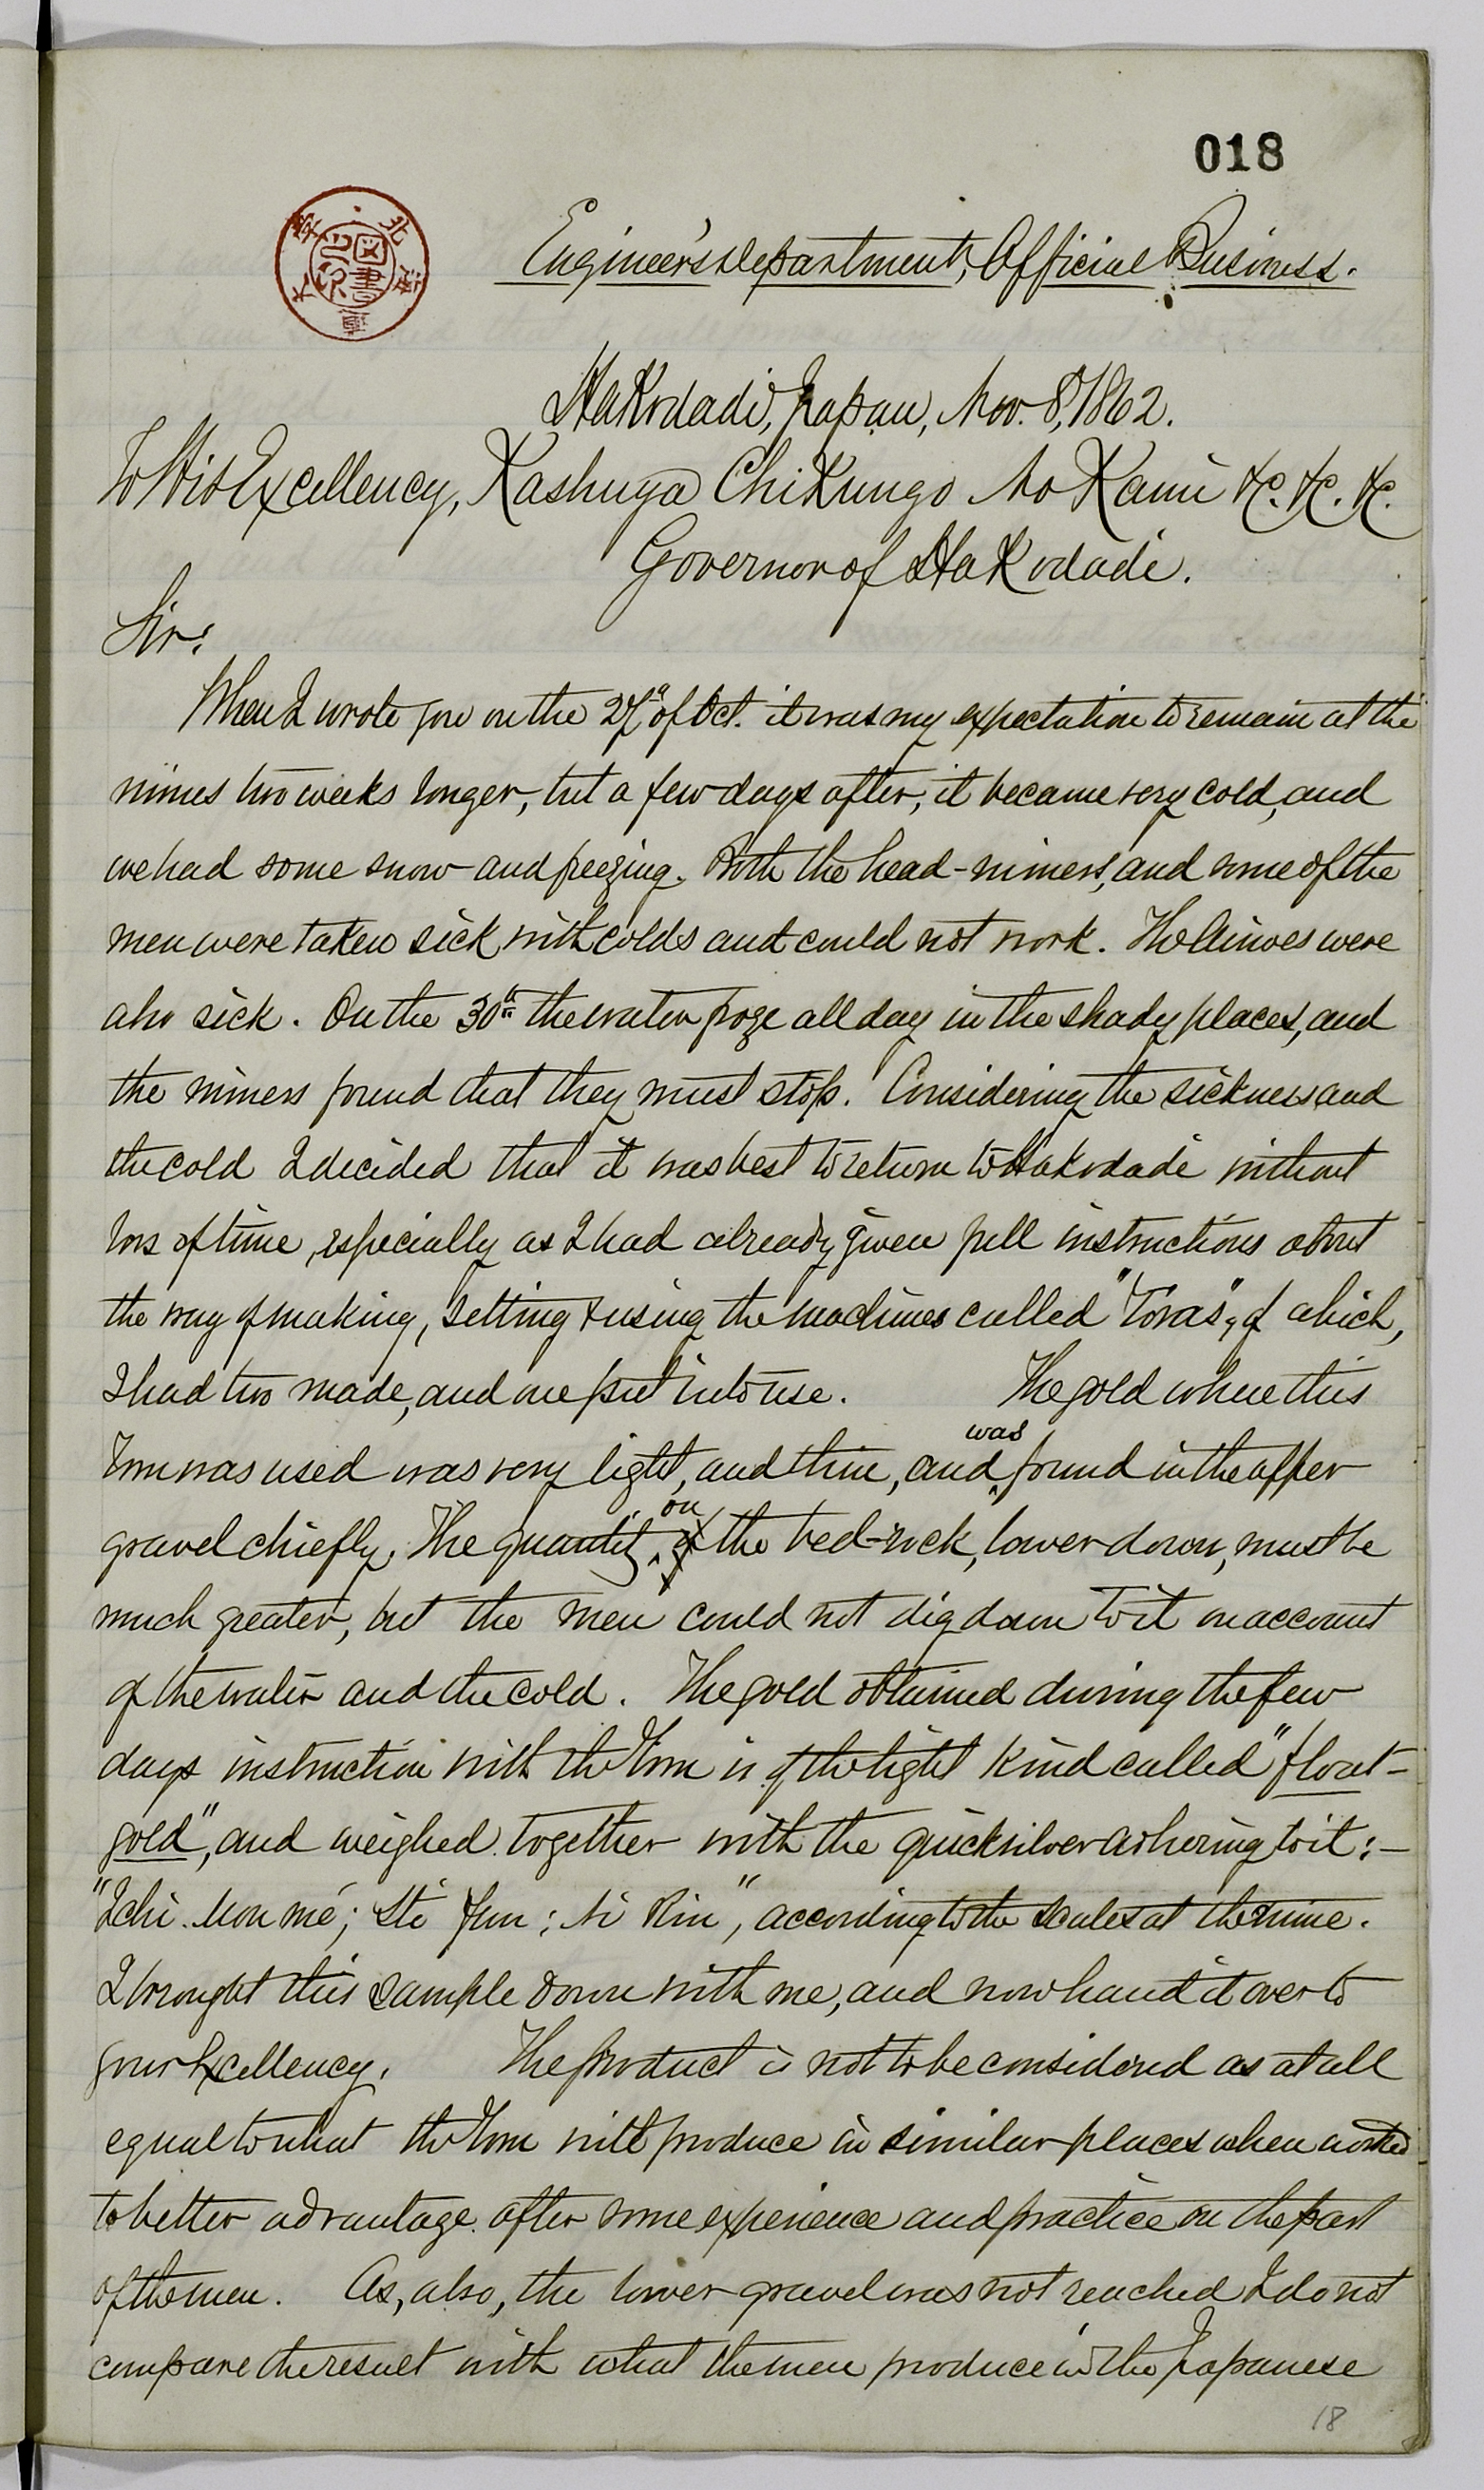 018
北海道
大學
圖書
之印
章
Engineer's Department, Official Business.
Hakodadi, Japan, Nov. 8, 1862.
To His Excellency, Kashuya Chikungo No Kami &c. &c. &c.
Governor of Hakodadi.
Sir:
When I wrote you on the 27th of Oct. it was my expectation to remain at the
mines two weeks longer, but a few days after, it became very cold, and
we had some snow and freezing. Both the head-miners, and some of the
men were taken sick with colds and could not work. The Ainoes were
also sick. On the 30th the water froze all day in the shady places, and
the miners found that they must stop. Considering the sickness and
the cold I decided that it was best to return to Hakodadi without
loss of time, especially as I had already given full instructions about
the way of making, setting & using the machines called "Toms", of which,
I had two made, and one put into use. The gold where this
Tom was used was very light, and thin, and was found in the upper
gravel chiefly. The quantity on the bed-rock, lower down, must be
much greater, but the men could not dig down to it on account
of the water and the cold. The gold obtained during the few
days instruction with the Tom is of the light kind called "float-
gold", and weighed together with the quicksilver adhering to it:—
"Ichi Mon mé; Sti Fun; Ni Rin", according to the scales at the mine.
I brought this sample down with me, and now hand it over to
your Excellency. The product is not to be considered as at all
equal to what the Tom will produce in similar places when worked
to better advantage after some experience and practice on the part
of the men. As, also, the lower gravel was not reached I do not
compare the result with what the men produce in the Japanese
18